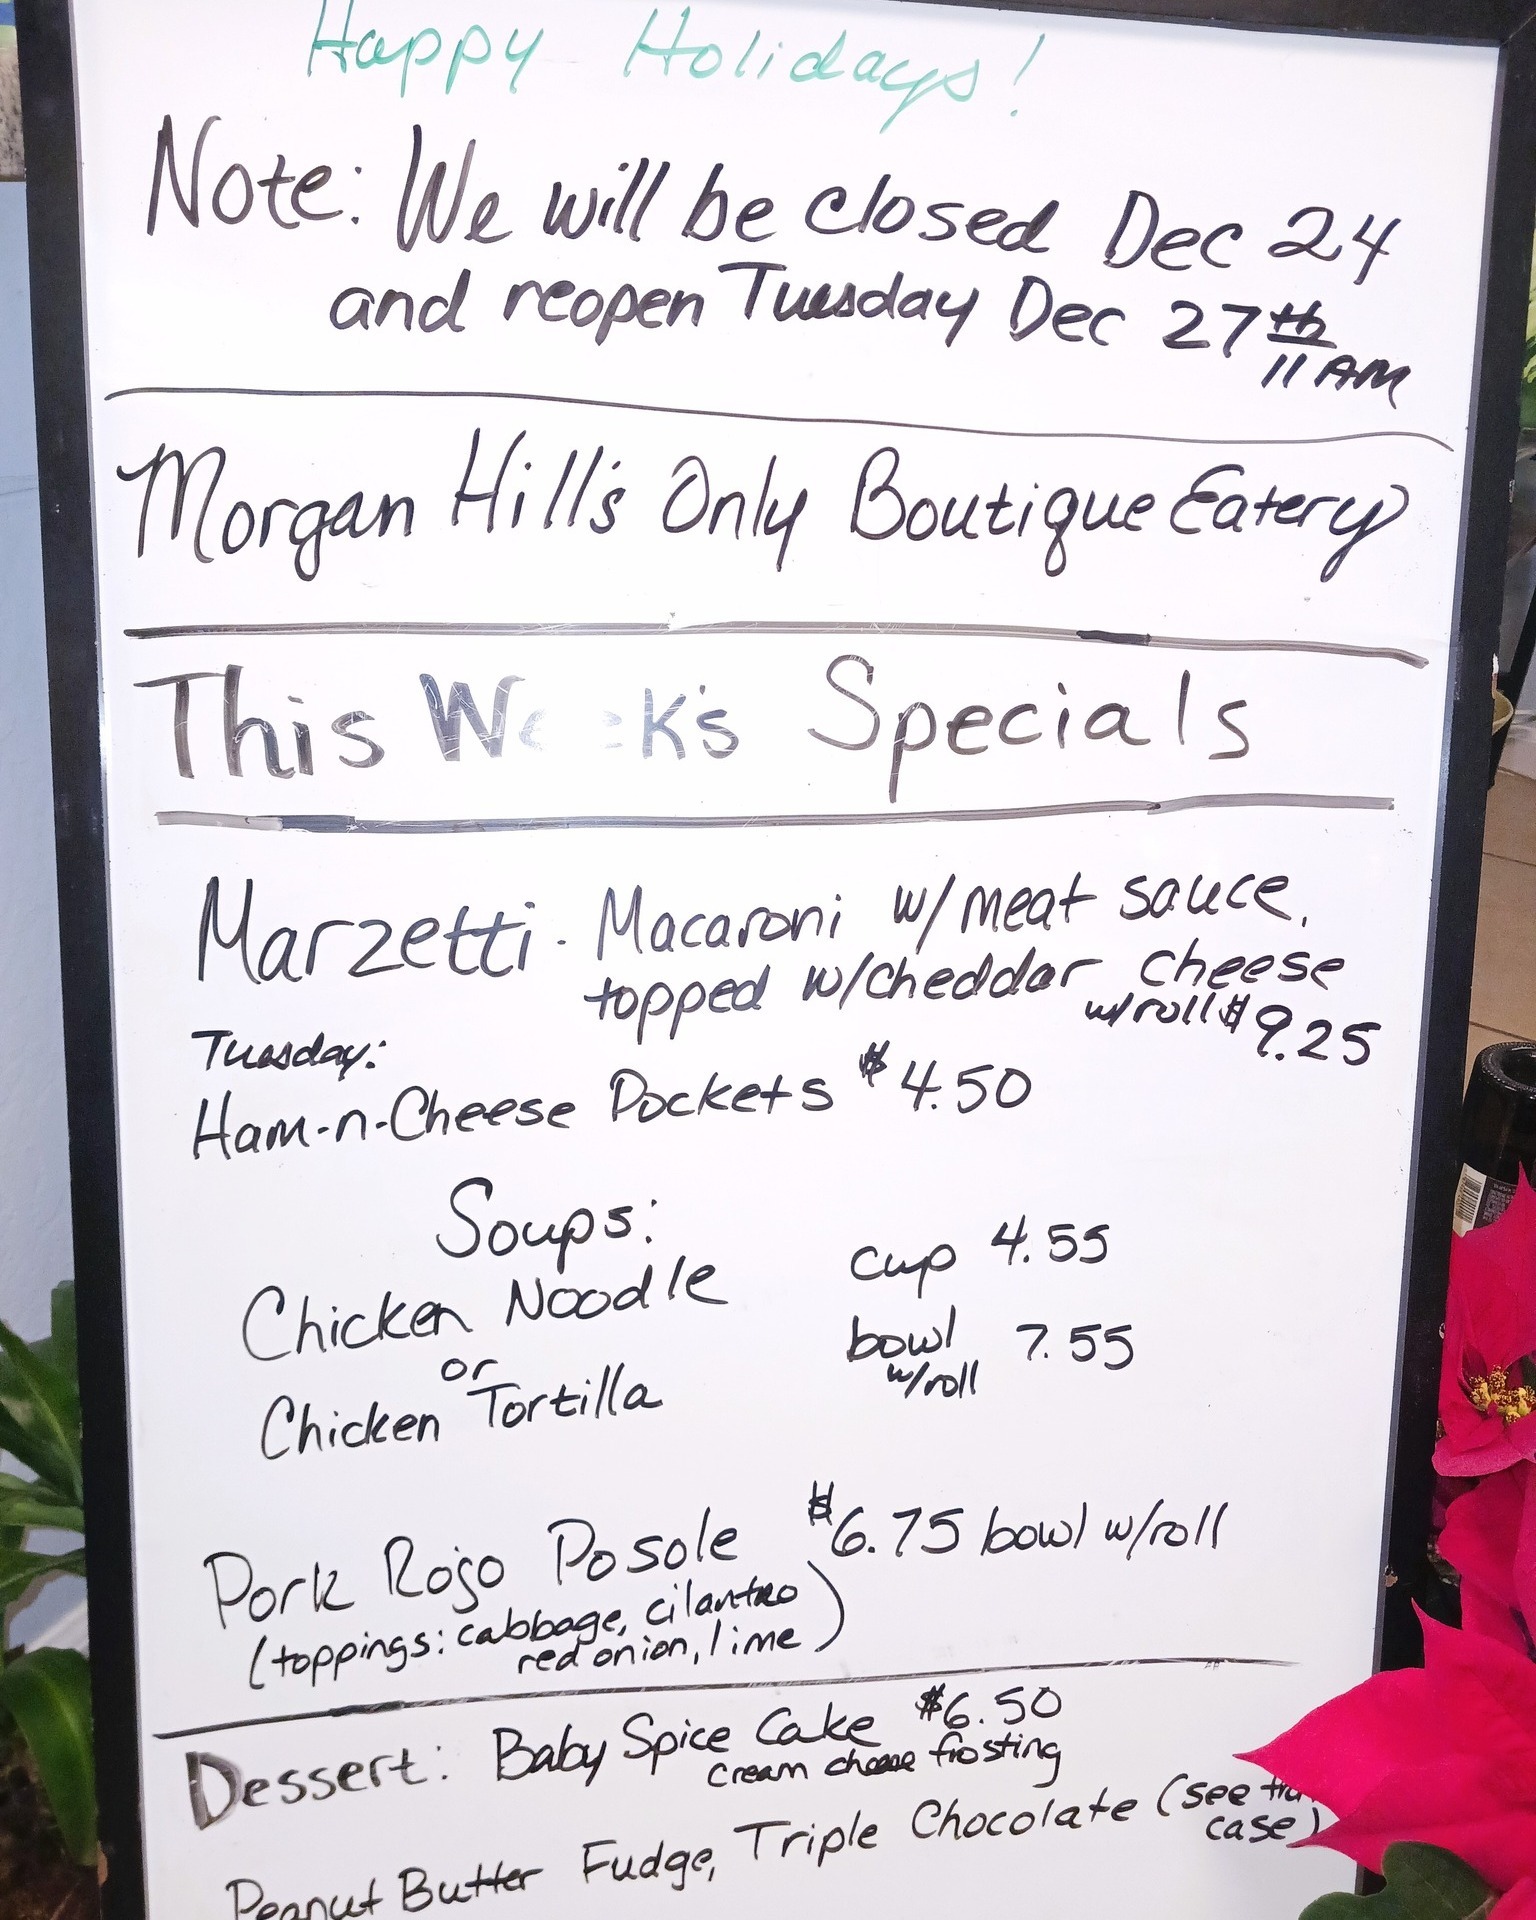 Happy Holidays!
Note: We will be closed Dec 24
and reopen Tuesday Dec 27th
11 AM
Morgan Hill's Only Boutique Eatery
This Week's Specials
Marzetti - Macaroni w/meat sauce,
topped w/cheddar cheese
w/roll $9.25
Tuesday:
Ham-n-Cheese Pockets $4.50
Soups:
Chicken Noodle cup 4.55
or bowl 7.55
w/roll
Chicken Tortilla
Pork Rojo Posole $6.75 bowl w/roll
(toppings: cabbage, cilantro
red onion, lime)
Dessert: Baby Spice Cake $6.50
cream cheese frosting
Peanut Butter Fudge, Triple Chocolate (see
case)